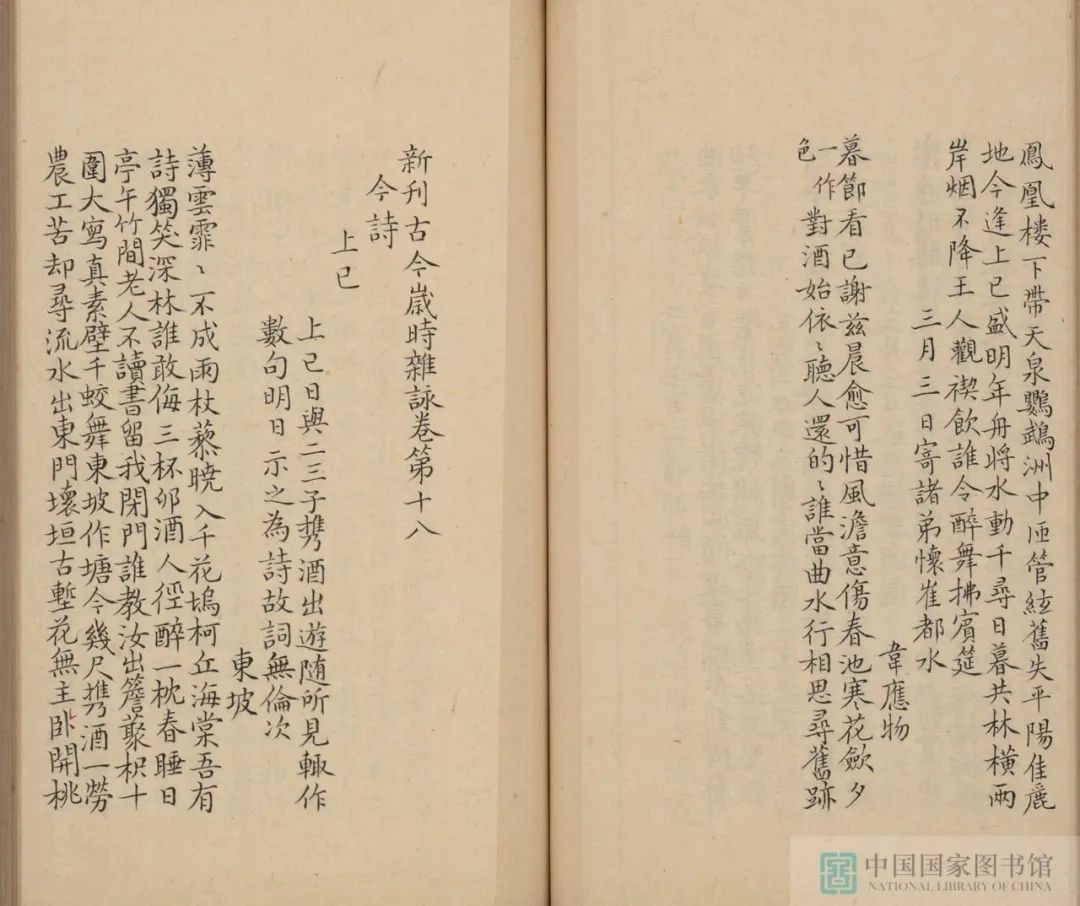 鳳凰楼下帶天泉鸚鵡洲中匝管絃舊失平陽佳麗
地今逢上巳盛明年舟將水動千尋日暮共林橫兩
岸烟不降王人觀禊飲誰令醉舞拂賓筵
三月三日寄諸弟懷崔都水
韋應物
暮節看已謝兹晨愈可惜風澹意傷春池寒花歛夕
一作色
對酒始依〻聽人還的〻誰當曲水行相思尋舊跡
新刊古今歲時雜詠卷第十八
今詩
上巳
上巳日與二三子携酒出遊随所見輙作
數句明日示之為詩故詞無倫次
東坡
薄雲霏〻不成雨杖藜暁入千花塢柯丘海棠吾有
詩獨笑深林誰敢侮三杯卯酒人徑醉一枕春睡日
亭午竹間老人不讀書留我閉門誰教汝出簷藂枳十
圍大寫真素壁千蛟舞東坡作塘今幾尺携酒一勞
農工苦却尋流水出東門壞垣古塹花無主卧開桃
中国国家图书馆
NATIONAL LIBRARY OF CHINA